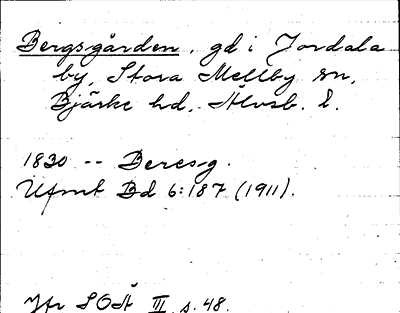 Bergsgården, gd i Jordala
by, Stora Mellby sn,
Bjärke hd, Älvsb. l.
1830 -- Beresg.
Ufmt Bd 6:187 (1911).
Jfr SOÄ III s. 48.